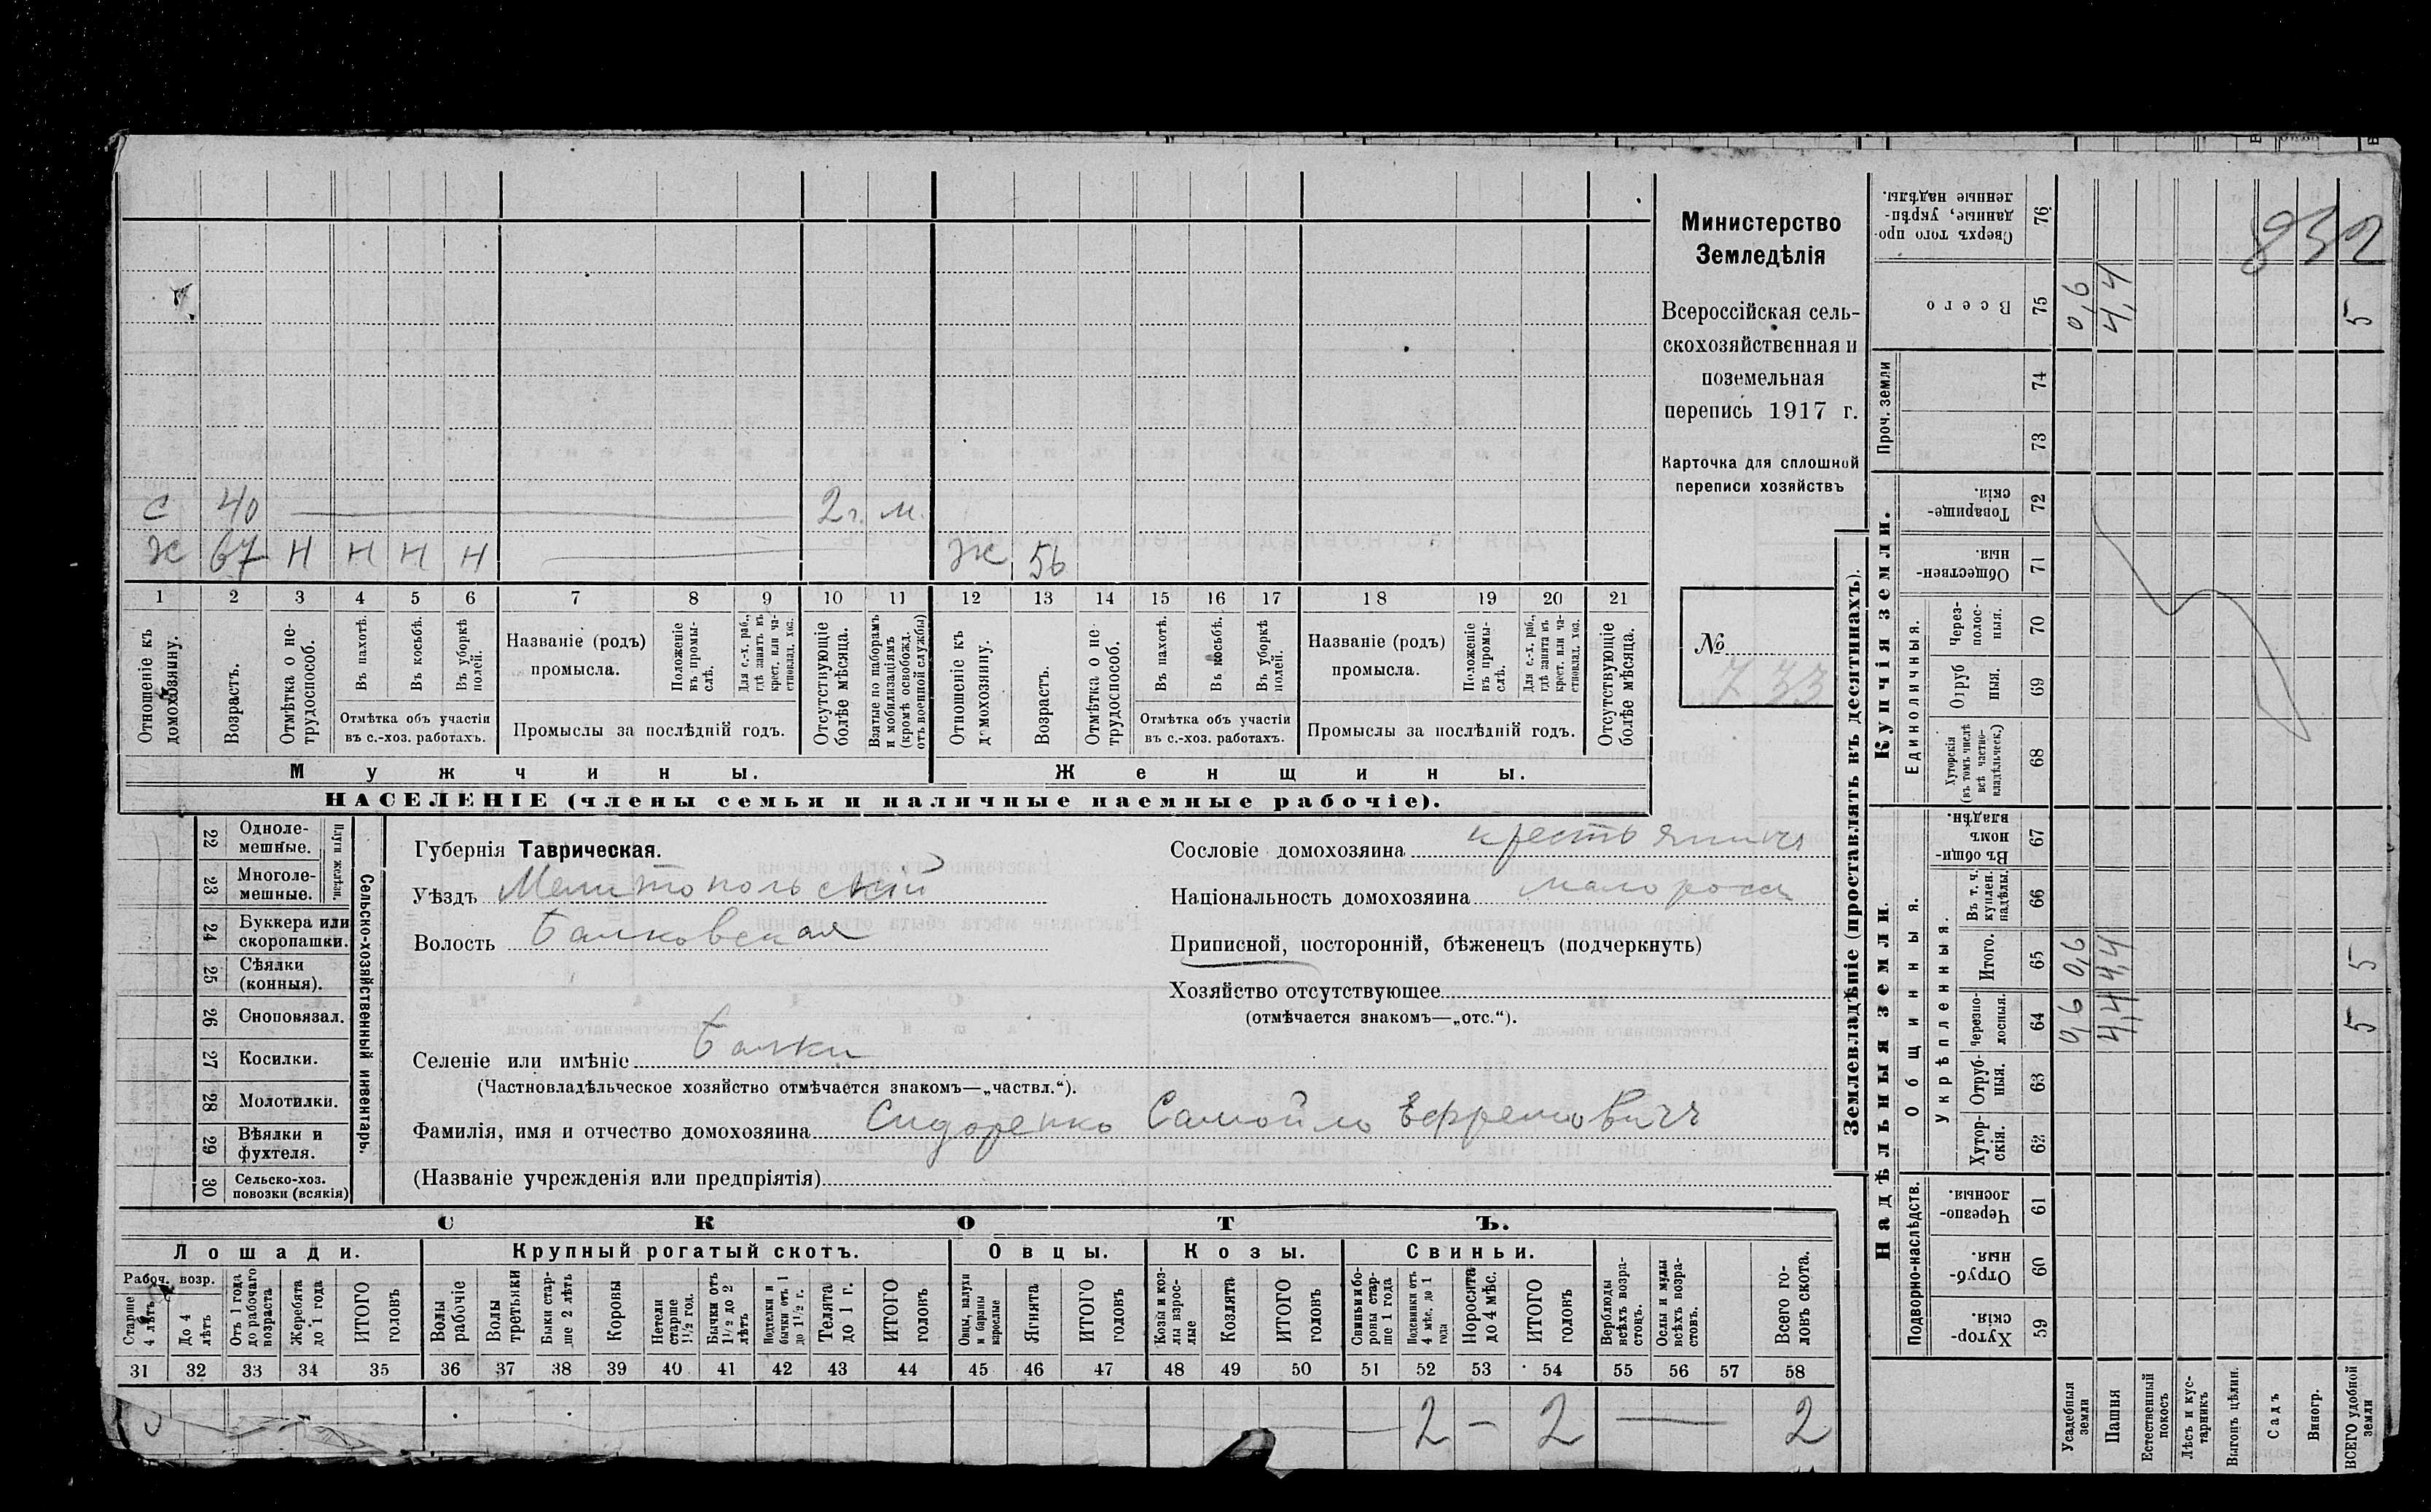 Министерство
Земледѣлія
Всероссійская сель-
скохозяйственная и
поземельная
перепись 1917 г.
Карточка для сплошной
переписи хозяйствъ
№ 733
832
С 40 2 г. м.
Ж 56
Х 67 Н Н Н Н
1 2 3 4 5 6 7 8 9 10 11 12 13 14 15 16 17 18 19 20 21
Отношеніе къ домохозяину.
Возрастъ.
Отмѣтка о не-трудоспособ.
Въ пахотѣ.
Въ косьбѣ.
Въ уборкѣ полей.
Отмѣтка объ участіи
въ с.-хоз. работахъ.
Названіе (родъ)
промысла.
Положеніе въ промы-слѣ.
Для с.-х. раб., гдѣ занятъ въ крест. или ча-стновлад. хоз.
Промыслы за послѣдній годъ.
Отсутствующіе болѣе мѣсяца.
Взятые по наборамъ и мобилизаціямъ (кромѣ освобожд. отъ военной службы)
Отношеніе къ домохозяину.
Возрастъ.
Отмѣтка о не трудоспособ.
Въ пахотѣ.
Въ косьбѣ.
Въ уборкѣ полей.
Отмѣтка объ участіи
въ с.-хоз. работахъ.
Названіе (родъ)
промысла.
Положеніе въ промы-слѣ.
Для с.-х. раб., гдѣ занята въ крест. или ча-стновлад. хоз.
Промыслы за послѣдній годъ.
Отсутствующіе болѣе мѣсяца.
Мужчины.
Женщины.
НАСЕЛЕНІЕ (члены семьи и наличные наемные рабочіе).
Сельско-хозяйственный инвентарь.
Плуги желѣзн.
22 Одноле-мешные.
23 Многоле-мешные.
24 Буккера или скоропашки.
25 Сѣялки (конныя).
26 Сноповязал.
27 Косилки.
28 Молотилки.
29 Вѣялки и фухтеля.
30 Сельско-хоз. повозки (всякія)
Губернія Таврическая.
Уѣздъ Мелитопольскій
Волость Балковская
Селеніе или имѣніе Балки
(Частновладѣльческое хозяйство отмѣчается знакомъ—„частвл.“).
Фамилія, имя и отчество домохозяина Сидоренко Самойло Ефремовичъ
(Названіе учрежденія или предпріятія)
Сословіе домохозяина крестьянинъ
Національность домохозяина малоросс
Приписной, посторонній, бѣженецъ (подчеркнуть)
Хозяйство отсутствующее
(отмѣчается знакомъ—„отс.“).
СКОТЪ.
Лошади. Крупный рогатый скотъ. Овцы. Козы. Свиньи.
Рабоч. возр.
Старше 4 лѣтъ
До 4 лѣтъ
Отъ 1 года до рабочаго возраста
Жеребята до 1 года
ИТОГО головъ
Волы рабочіе
Волы третьяки
Быки стар-ше 2 лѣтъ
Коровы
Нетели старше 1½ год.
Бычки отъ 1½ до 2 лѣтъ
Подтелки и бычки отъ 1 до 1½ г.
Телята до 1 г.
ИТОГО головъ
Овцы, валухи и бараны взрослые
Ягнята
ИТОГО головъ
Козы и коз-лы взрос-лые
Козлята
ИТОГО головъ
Свиньи и бо-ровы стар-ше 1 года
Подсвинки отъ 4 мѣс. до 1 года
Поросята до 4 мѣс.
ИТОГО головъ
Верблюды всѣхъ возра-стовъ.
Ослы и мулы всѣхъ возра-стовъ.
Всего го-ловъ скота.
31 32 33 34 35 36 37 38 39 40 41 42 43 44 45 46 47 48 49 50 51 52 53 54 55 56 57 58
— 2 — 2 — 2
Землевладѣніе (проставлять въ десятинахъ).
Надѣльныя земли.
Купчія земли.
Проч. земли
Подворно-наслѣдств.
Общинныя.
Укрѣпленныя.
Единоличныя.
Сверхъ того про-данные, укрѣп-ленные надѣлы. 76
Всего 75 0,6 4,4 5
74
73
Товарище-скія. 72
Обществен-ныя. 71
Через-полос-ныя. 70
Отруб ныя. 69
Хуторскія (въ томъ числѣ всѣ частно-владѣльческ.) 68
Въ общи-номъ владѣн. 67
Въ т. ч. куплен. надѣлы. 66
Итого. 65 0,6 4,4 5
Черезпо-лосныя. 64 0,6 4,4 5
Отруб-ныя. 63
Хутор-скія. 62
Черезпо-лосныя. 61
Отруб-ныя. 60
Хутор-скія. 59
Усадебныя земли
Пашня
Естественный покосъ
Лѣсъ и кус-тарникъ
Выгонъ цѣлин.
Садъ
Виногр.
ВСЕГО удобной земли